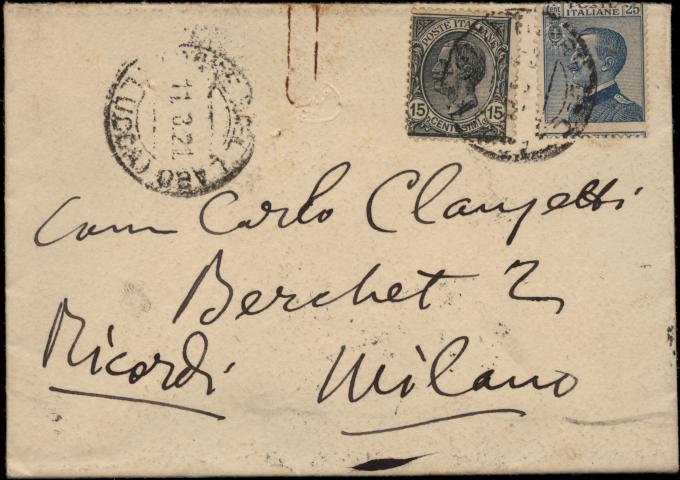 Cent 25
POSTE ITALIANE
POSTE ITALIANE
15 CENTESIMI 15
11.3.21
LAGO (LUCCA)
Com Carlo Clausetti
Berchet 2
Ricordi Milano